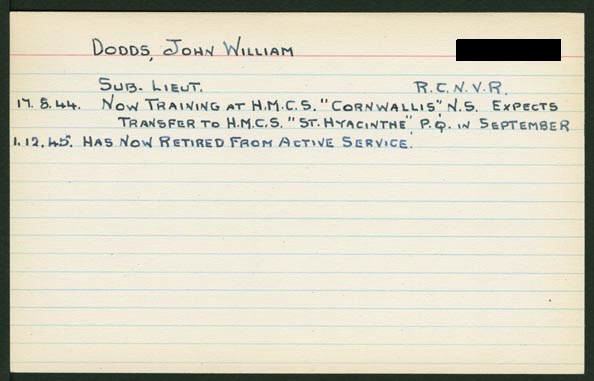 DODDS, JOHN WILLIAM
SUB. LIEUT. R.C.N.V.R.
17.8.44. NOW TRAINING AT H.M.C.S. "CORNWALLIS", N.S. EXPECTS
TRANSFER TO H.M.C.S. "ST. HYACINTHE", P.Q. IN SEPTEMBER
1.12.45. HAS NOW RETIRED FROM ACTIVE SERVICE.